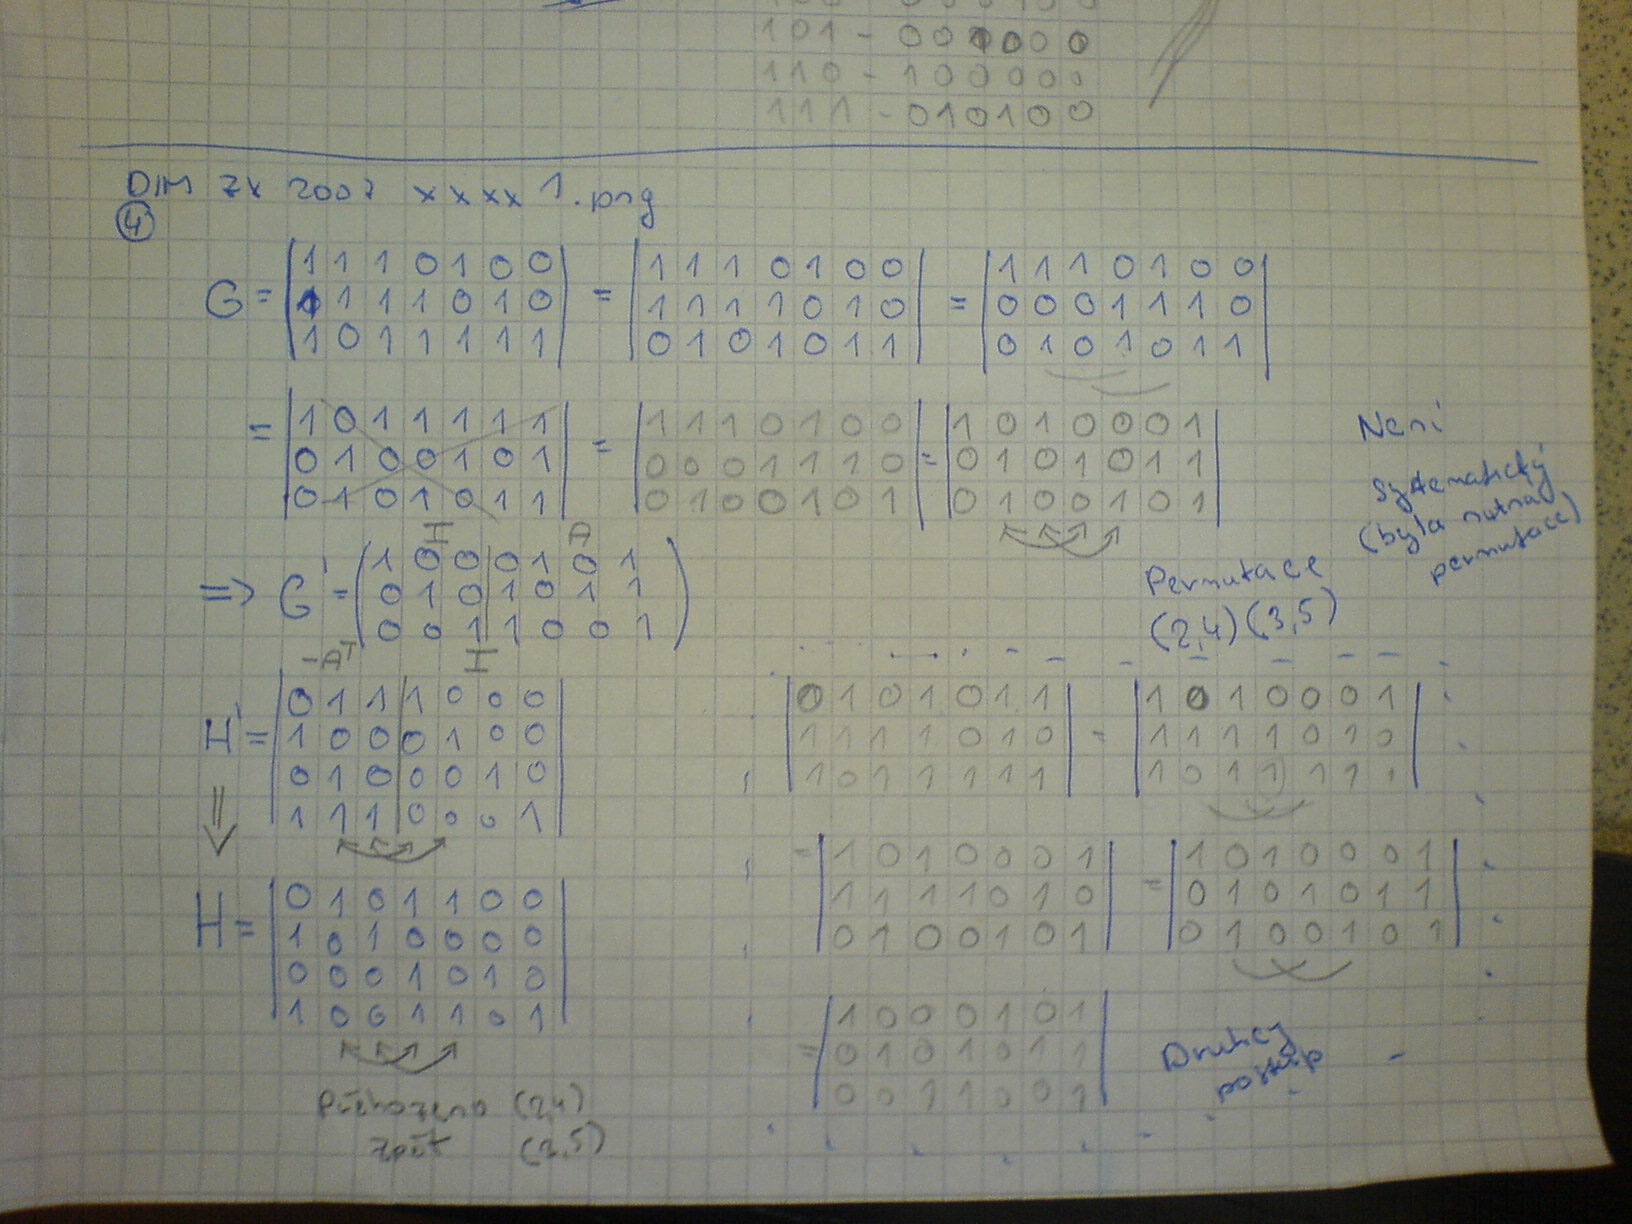 101 - 000000
110 - 100000
111 - 010100
DIM ZK 2007 xxxx 1.png
4
G = |1 1 1 0 1 0 0| = |1 1 1 0 1 0 0| = |1 1 1 0 1 0 0|
|1 1 1 1 0 1 0| |1 1 1 1 0 1 0| |0 0 0 1 1 1 0|
|1 0 1 1 1 1 1| |0 1 0 1 0 1 1| |0 1 0 1 0 1 1|
= |1 0 1 1 1 1 1| = |1 1 1 0 1 0 0| = |1 0 1 0 0 0 1|
|0 1 0 0 1 0 1| |0 0 0 1 1 1 0| |0 1 0 1 0 1 1|
|0 1 0 1 0 1 1| |0 1 0 0 1 0 1| |0 1 0 0 1 0 1|
Není
systematický
(byla nutná
permutace)
I A
=> G' = (1 0 0 0 1 0 1)
0 1 0 1 0 1 1
0 0 1 1 0 0 1
Permutace
(2,4)(3,5)
-Aᵀ I
H' = |0 1 1 1 0 0 0|
|1 0 0 0 1 0 0|
|0 1 0 0 0 1 0|
|1 1 1 0 0 0 1|
H = |0 1 0 1 1 0 0|
|1 0 1 0 0 0 0|
|0 0 0 1 0 1 0|
|1 0 0 1 1 0 1|
Přehozeno (2,4)
zpět (3,5)
|0 1 0 1 0 1 1| = |1 0 1 0 0 0 1|
|1 1 1 1 0 1 0| |1 1 1 1 0 1 0|
|1 0 1 1 1 1 1| |1 0 1 1 1 1 1|
= |1 0 1 0 0 0 1| = |1 0 1 0 0 0 1|
|1 1 1 1 0 1 0| |0 1 0 1 0 1 1|
|0 1 0 0 1 0 1| |0 1 0 0 1 0 1|
= |1 0 0 0 1 0 1|
|0 1 0 1 0 1 1|
|0 0 1 1 0 0 1|
Druhý
postup